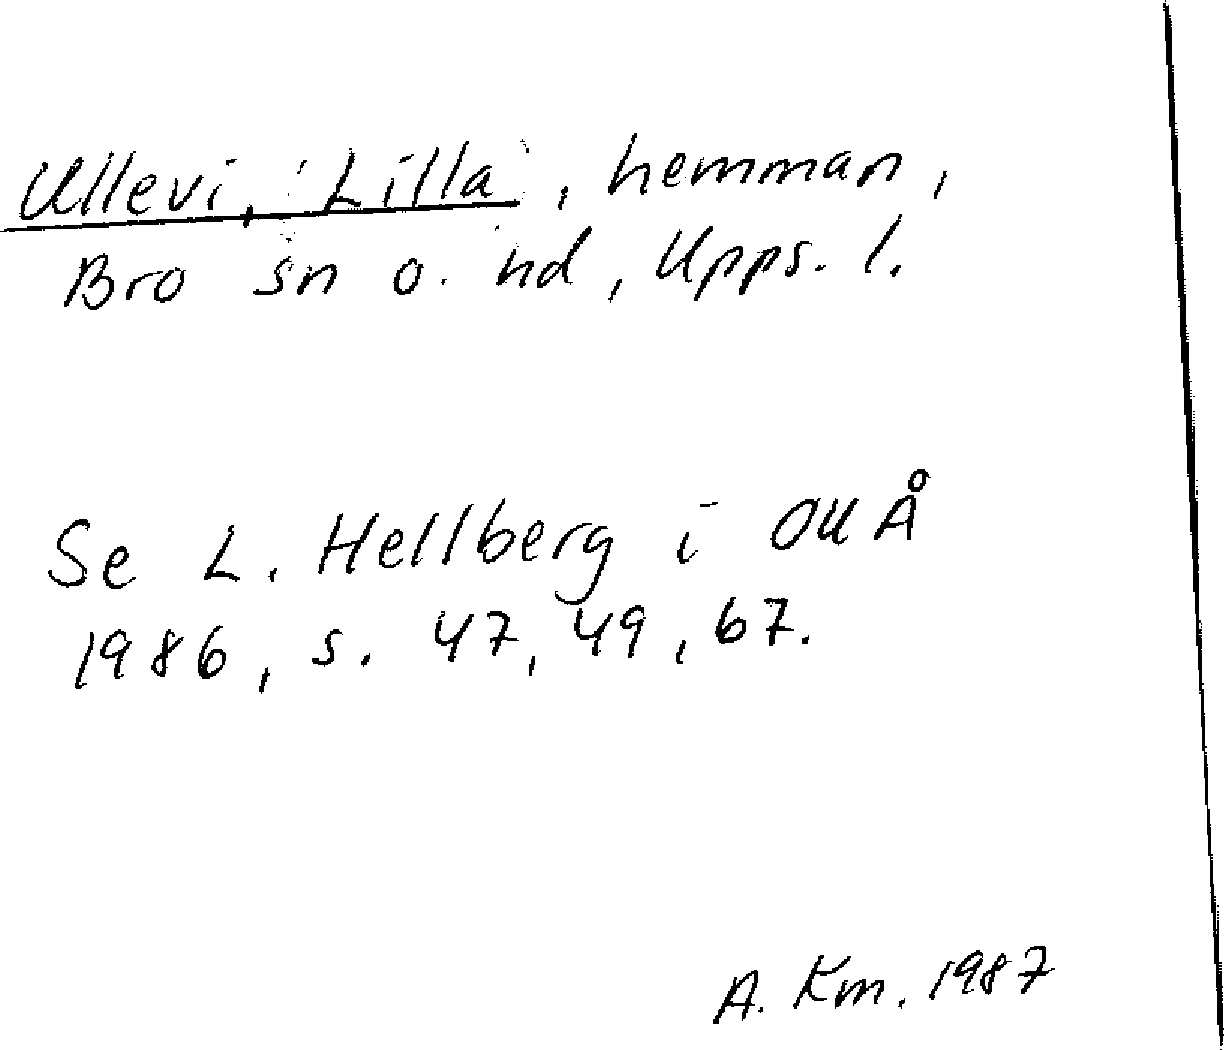 Ullevi, Lilla, hemman,
Bro sn o. hd, Upps. l.
Se L. Hellberg i OUÅ
1986, s. 47, 49, 67.
A. Km. 1987